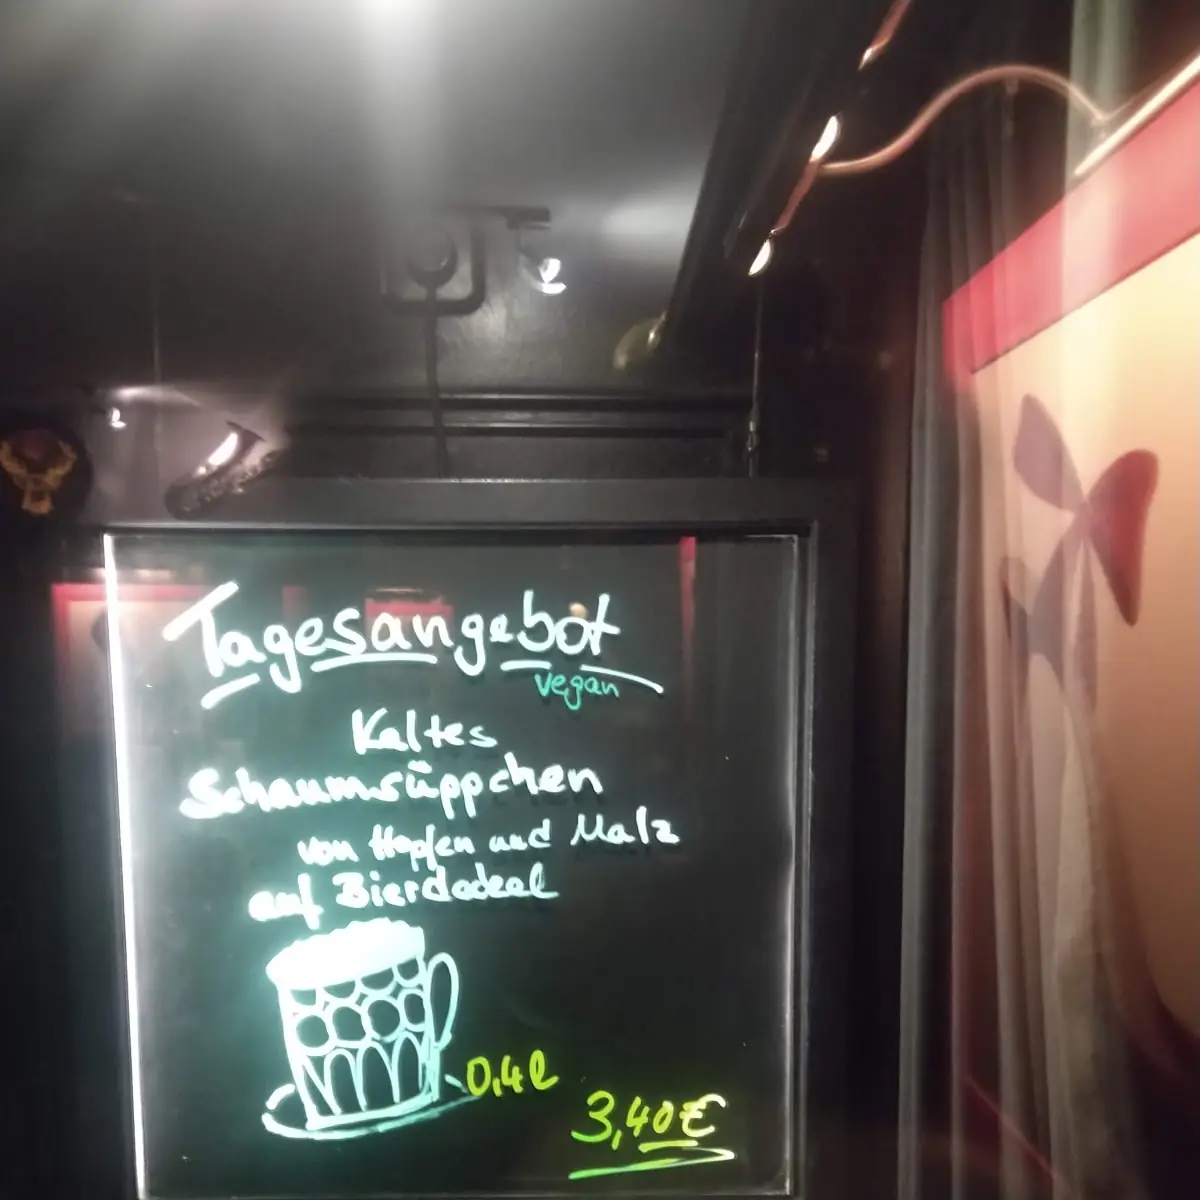 Tagesangebot
vegan
Kaltes
Schaumsüppchen
von Hopfen und Malz
auf Bierdeckel
0,4l
3,40€